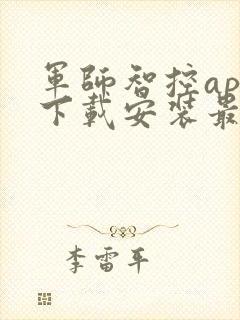 軍師智控ap
下載安裝最
李雷平